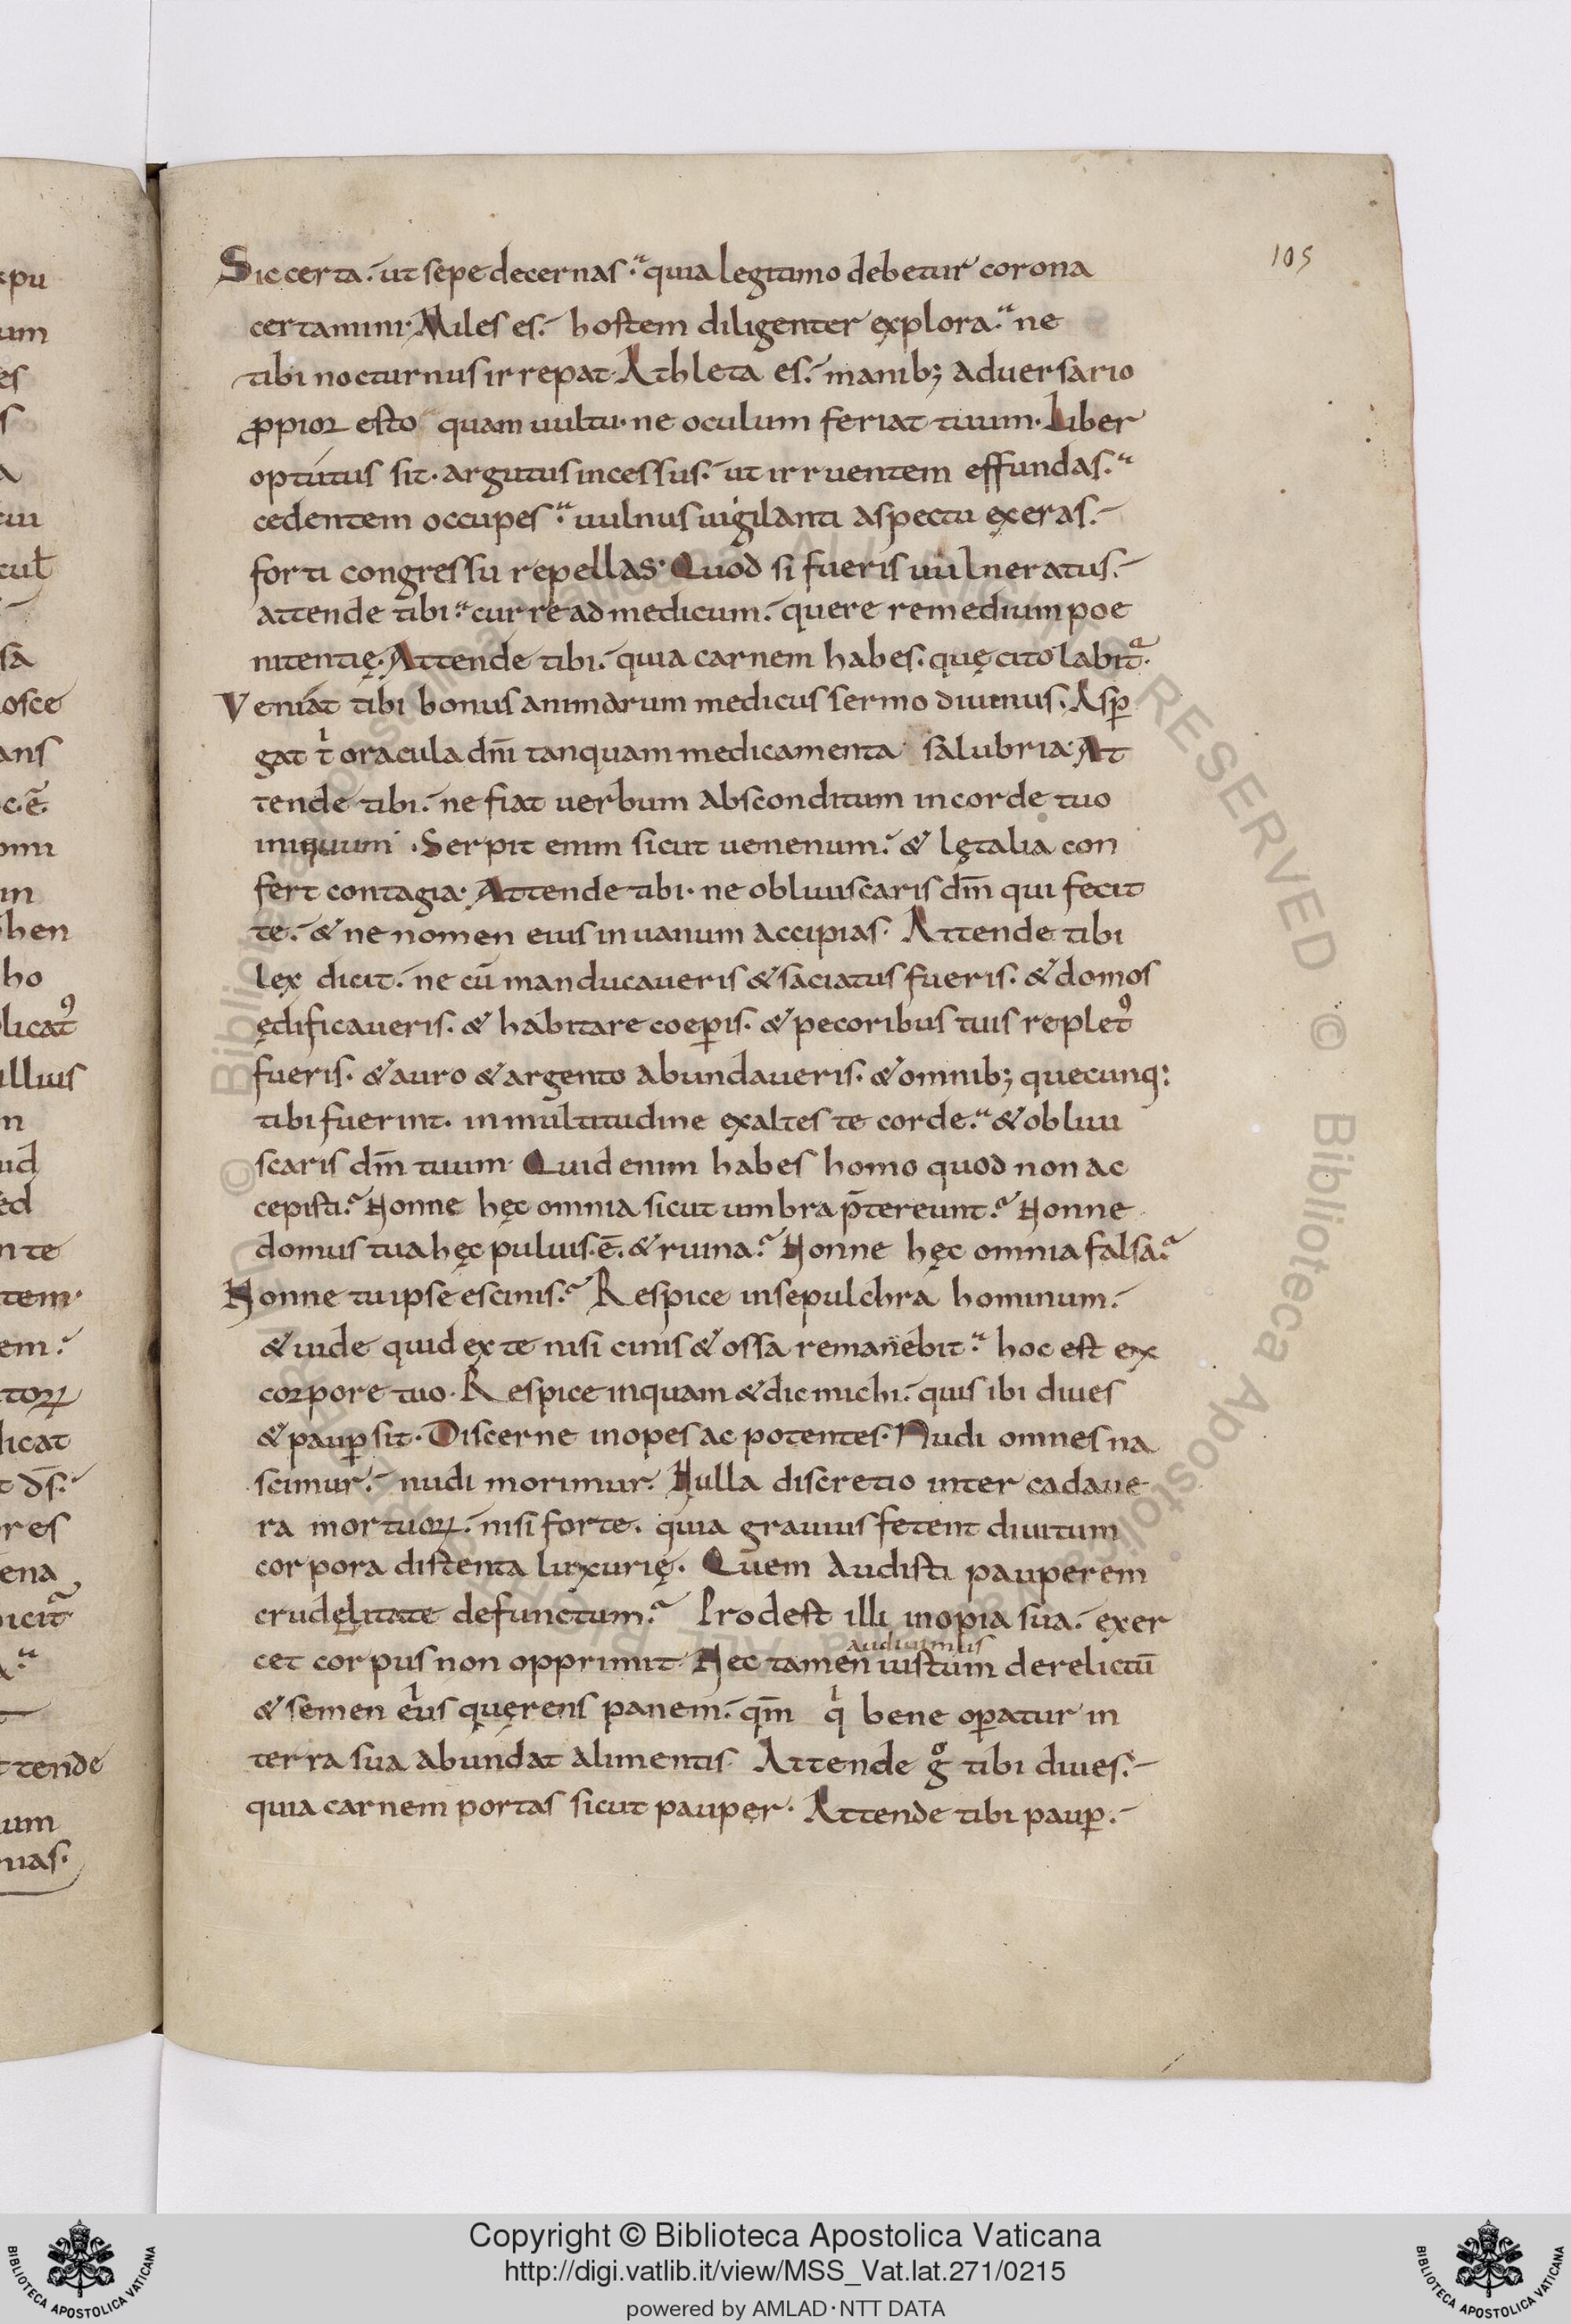 105
Sic certa. ut sepe decernas. quia legitimo debetur corona
certamini. Miles es. hostem diligenter explora. ne
tibi nocturnus irrepat. Athleta es. manib; aduersario
ꝓpior esto quam uultu. ne oculum feriat tuum. Liber
optutus sit. argutus incessus. ut irruentem effundas.
cedentem occupes. uulnus uigilanti aspectu exeras.
forti congressu repellas. Quod si fueris uulneratus.
attende tibi. curre ad medicum. quere remedium poe
nitentię. Attende tibi. quia carnem habes. quę cito labit᷑.
Veniat tibi bonus animarum medicus sermo diuinus. Asꝑ
gat t̍ oracula dm̄i tanquam medicamenta salubria. At
tende tibi. ne fiat uerbum absconditum in corde tuo
iniquum. Serpit enim sicut uenenum. & lętalia con
fert contagia. Attende tibi. ne obliuiscaris dm̄ qui fecit
te. & ne nomen eius in uanum accipias. Attende tibi
lex dicit. ne cū manducaueris & saciatus fueris. & domos
ędificaueris. & habitare coeꝑis. & pecoribus tuis replet᾽
fueris. & auro & argento abundaueris. & omnib; quecunq:
tibi fuerint. in multitudine exaltes te corde. & obliui
scaris dm̄ tuum. Quid enim habes homo quod non ac
cepisti? Nonne hęc omnia sicut umbra p̄tereunt? Nonne
domus tua hęc puluis .ē. & ruina? Nonne hęc omnia falsa?
Nonne tu ipse es cinis? Respice in sepulchra hominum.
& uide quid ex te nisi cinis & ossa remanebit. hoc est ex
corpore tuo. Respice inquam & dic michi. quis ibi diues
& pauꝑ sit. Discerne inopes ac potentes. Nudi omnes na
scimur. nudi morimur. Nulla discretio inter cadaue
ra mortuoꝝ. nisi forte. quia grauius fetent diuitum
corpora distenta luxurię. Quem audisti pauperem
crudęlitate defunctum? Prodest illi inopia sua. exer
cet corpus non opprimit. Nec tamen audiuimus iustum derelictū
& semen eius quęrens panem. qm̄ q̍ bene oꝑatur in
terra sua abundat alimentis. Attende gͦ tibi diues.
quia carnem portas sicut pauper. Attende tibi pauꝑ.
Copyright © Biblioteca Apostolica Vaticana
http://digi.vatlib.it/view/MSS_Vat.lat.271/0215
powered by AMLAD·NTT DATA
BIBLIOTECA APOSTOLICA VATICANA
BIBLIOTECA APOSTOLICA VATICANA